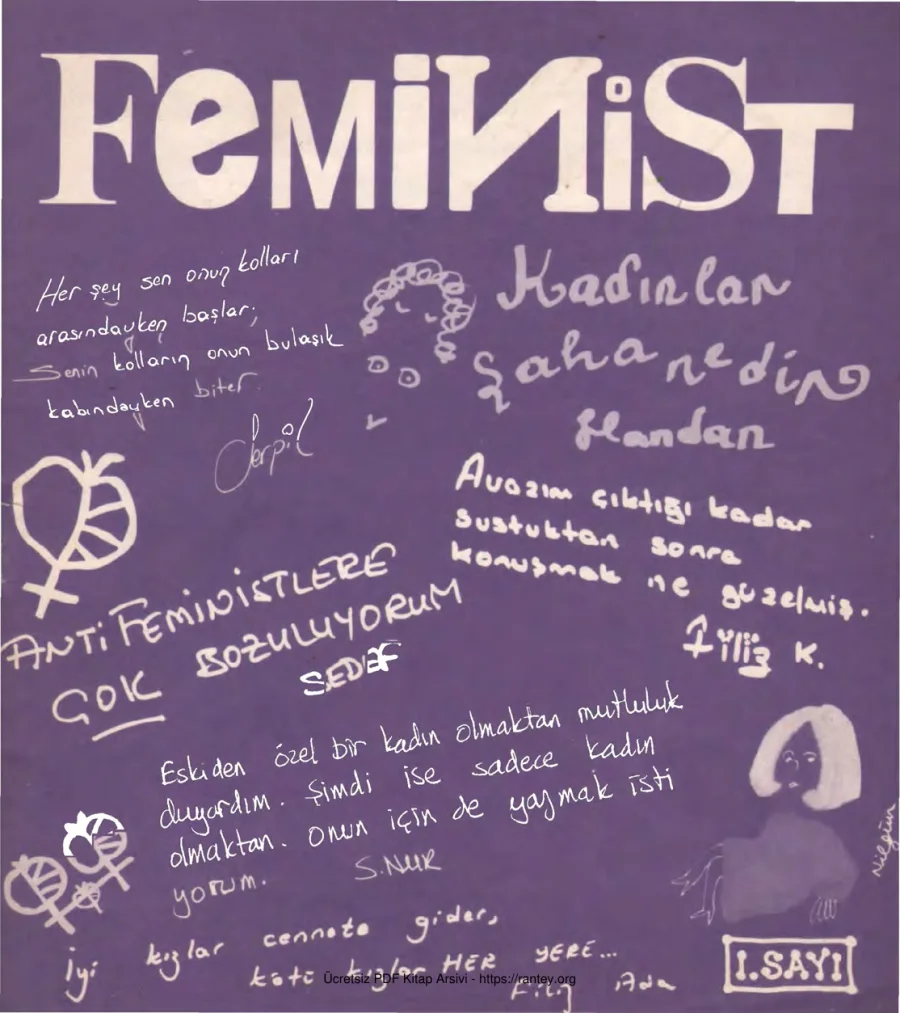 FeMiNiST
Her şey sen onun kolları
arasındayken başlar;
Senin kolların onun bulaşık
kabındayken biter.
Serpil
Kadınlar
Şahanedir
Handan
Avazım çıktığı kadar
sustuktan sonra
konuşmak ne güzelmiş.
Filiz K.
ANTİ FEMİNİSTLERE
ÇOK BOZULUYORUM
SEDEF
Eskiden özel bir kadın olmaktan mutluluk
duyardım. Şimdi ise sadece kadın
olmaktan. Onun için de yazmak isti
yorum.
S.NUR
Nilgün
İyi kızlar cennete gider,
kötü kızlar HER YERE...
Filiz Ada
1.SAYI
Ücretsiz PDF Kitap Arsivi - https://rantey.org